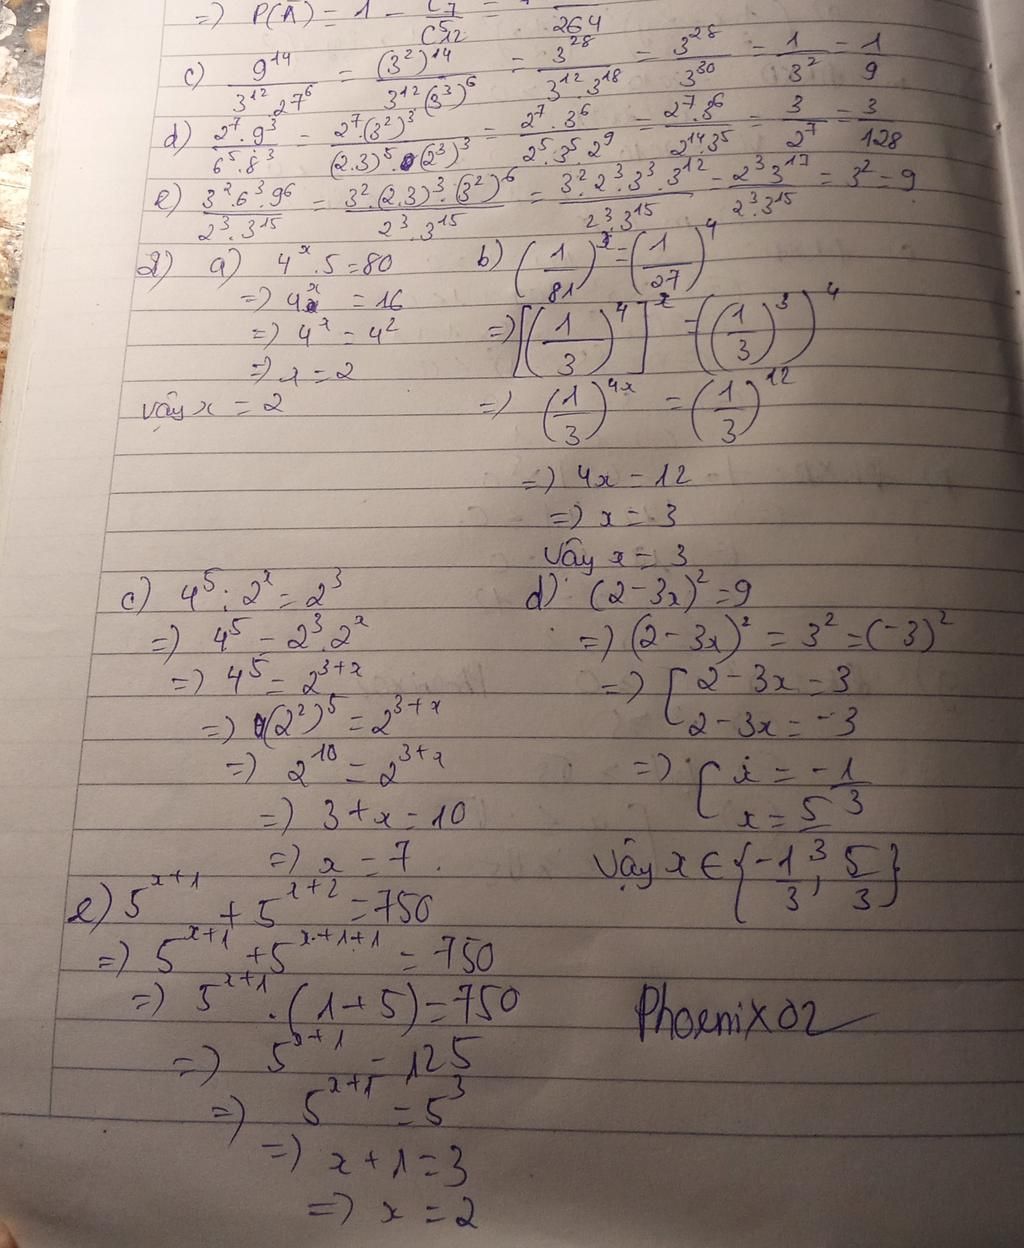 =) P(A̅) = 1 - C₇ / C⁵₁₂ = / 264
c) 9¹⁴ / 3¹².27⁶ = (3²)¹⁴ / 3¹².(3³)⁶ = 3²⁸ / 3¹².3¹⁸ = 3²⁸ / 3³⁰ = 1 / 3² = 1 / 9
d) 2⁷.9³ / 6⁵.8³ = 2⁷.(3²)³ / (2.3)⁵.(2³)³ = 2⁷.3⁶ / 2⁵.3⁵.2⁹ = 2⁷.3⁶ / 2¹⁴.3⁵ = 3 / 2⁷ = 3 / 128
e) 3².6³.9⁶ / 2³.3¹⁵ = 3².(2.3)³.(3²)⁶ / 2³.3¹⁵ = 3².2³.3³.3¹² / 2³.3¹⁵ = 2³3¹⁷ / 2³.3¹⁵ = 3² = 9
2) a) 4ˣ.5 = 80
=) 4ˣ = 16
=) 4ˣ = 4²
=) x = 2
Vậy x = 2
b) (1/81)ˣ = (1/27)⁴
=) [(1/3)⁴]ˣ = ((1/3)³)⁴
=) (1/3)⁴ˣ = (1/3)¹²
=) 4x = 12
=) x = 3
Vậy x = 3
c) 4⁵ : 2ˣ = 2³
=) 4⁵ = 2³.2ˣ
=) 4⁵ = 2³⁺ˣ
=) (2²)⁵ = 2³⁺ˣ
=) 2¹⁰ = 2³⁺ˣ
=) 3 + x = 10
=) x = 7.
d) (2 - 3x)² = 9
=) (2 - 3x)² = 3² = (-3)²
=) [ 2 - 3x = 3
2 - 3x = -3
=) [ x = -1/3
x = 5/3
Vậy x ∈ {-1/3; 5/3}
e) 5ˣ⁺¹ + 5ˣ⁺² = 750
=) 5ˣ⁺¹ + 5ˣ⁺¹⁺¹ = 750
=) 5ˣ⁺¹.(1 + 5) = 750
=) 5ˣ⁺¹ = 125
=) 5ˣ⁺¹ = 5³
=) x + 1 = 3
=) x = 2
Phoenix02